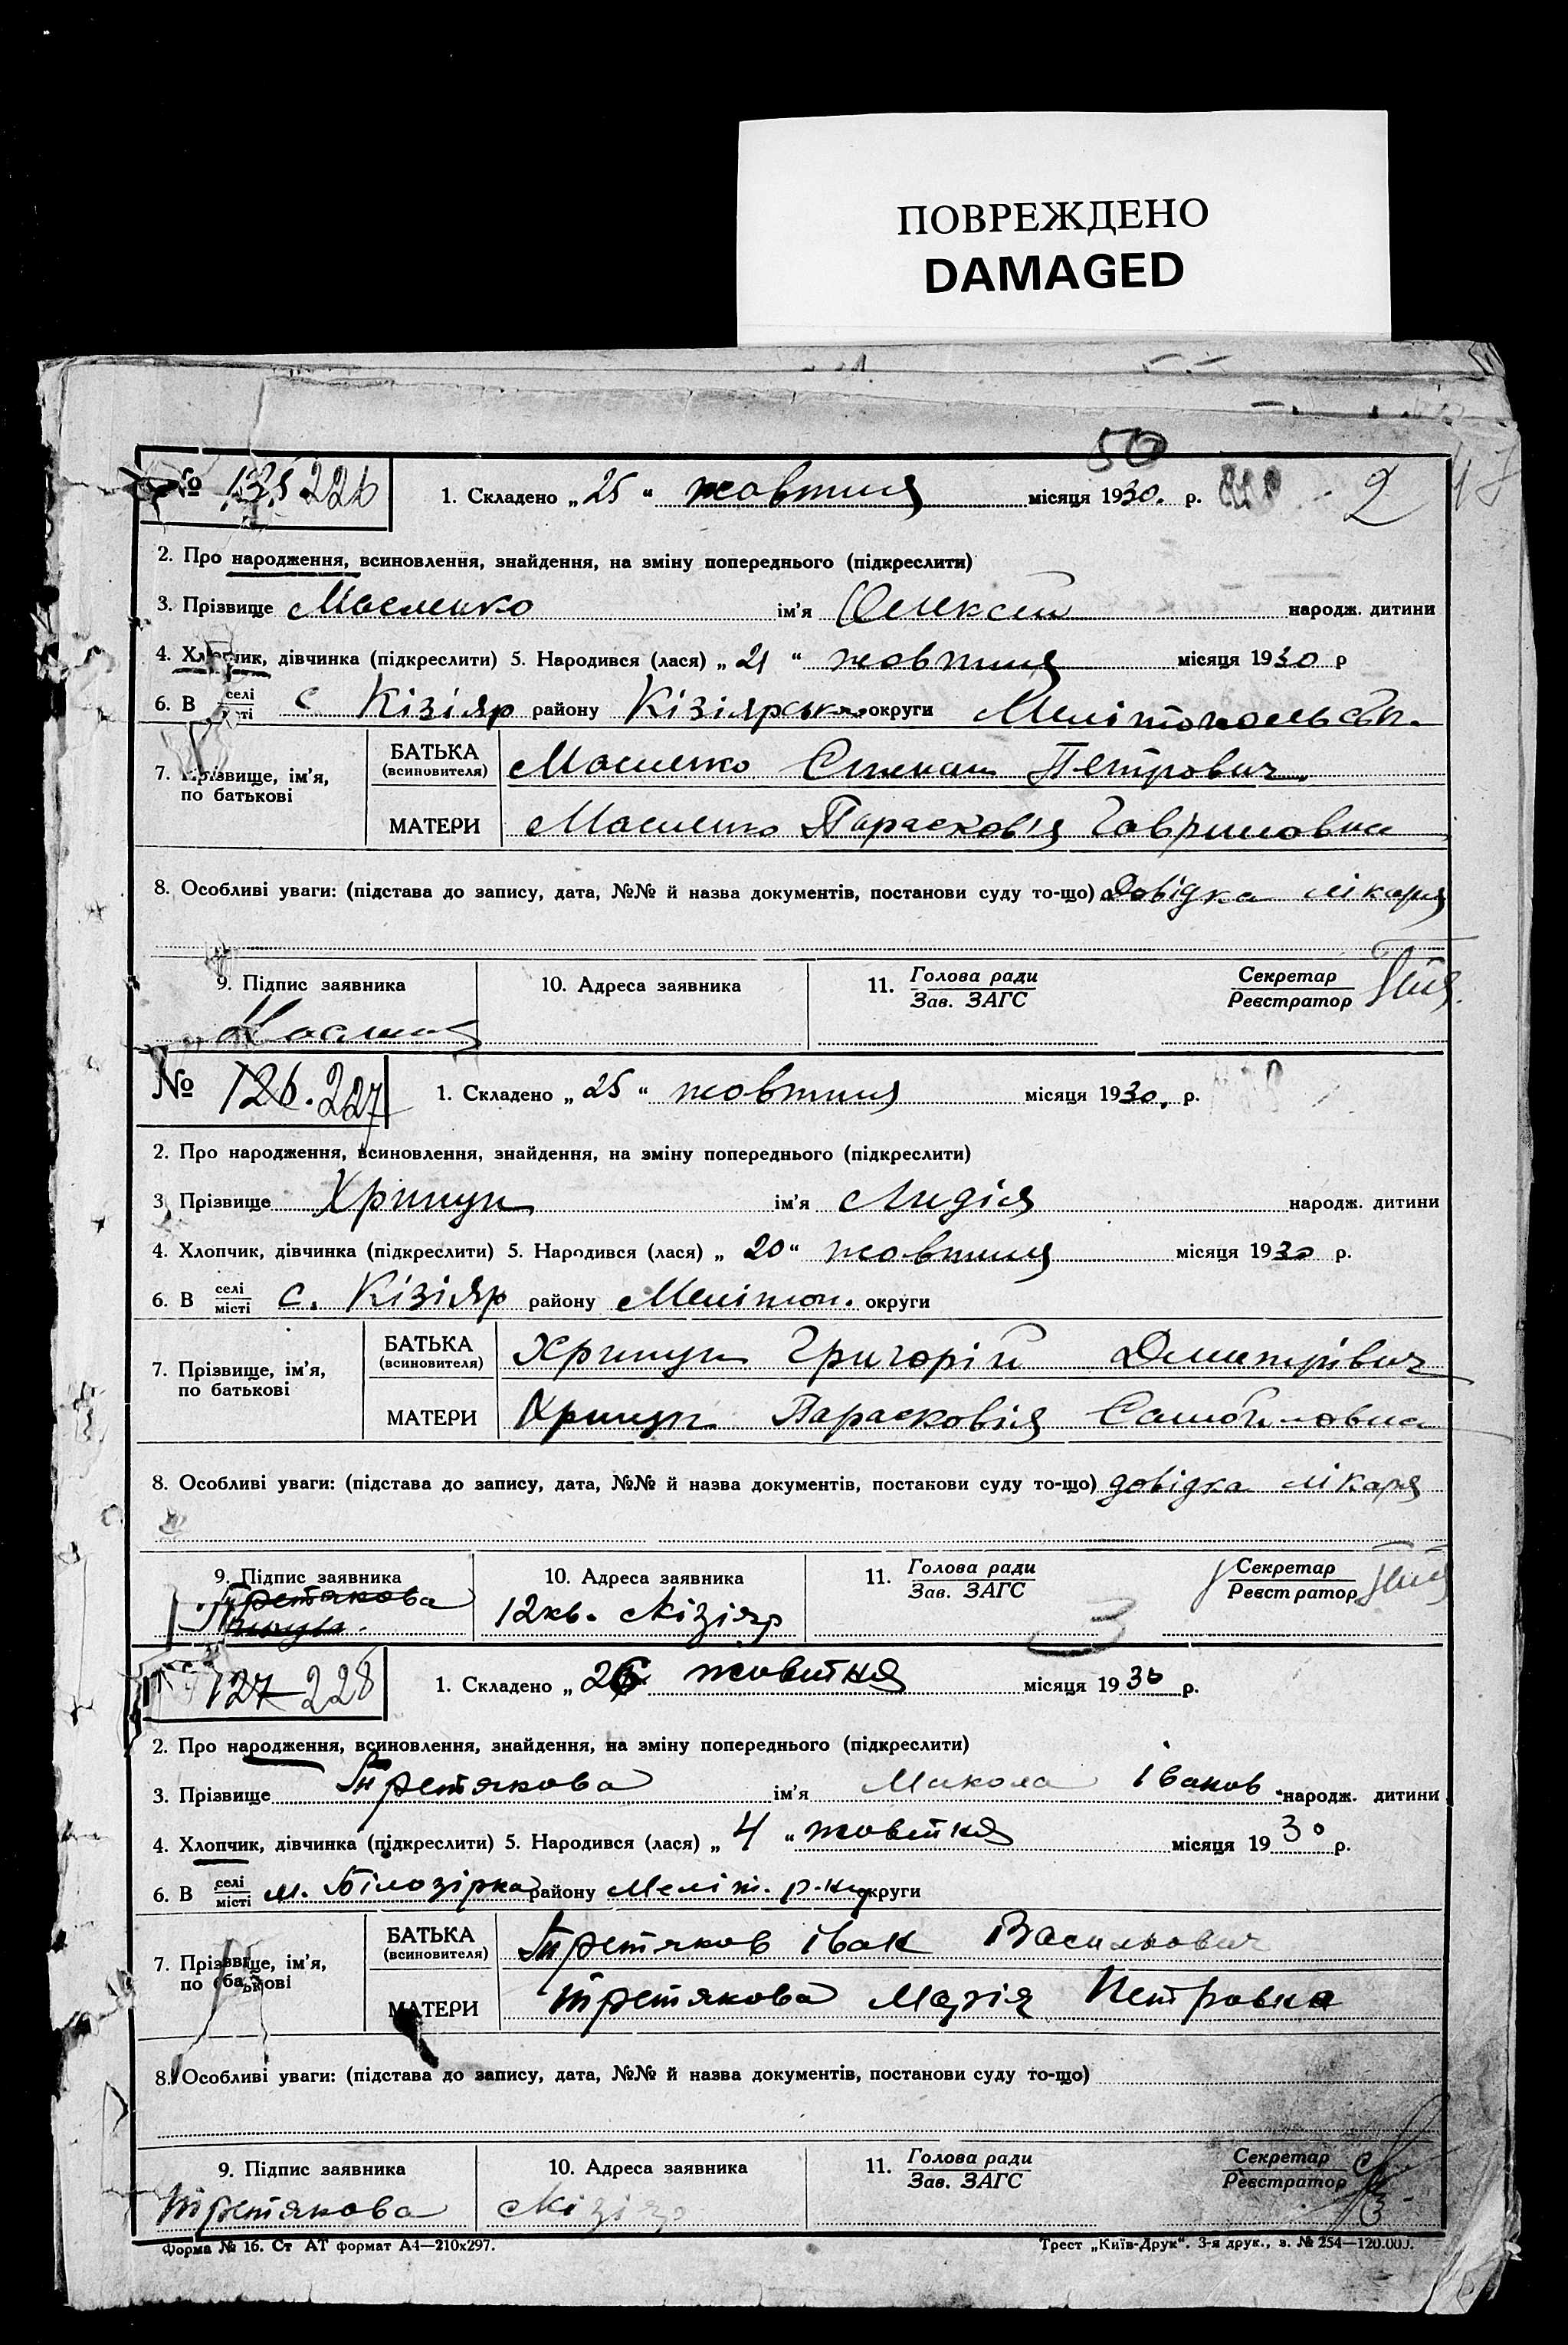 ПОВРЕЖДЕНО
DAMAGED
50
№ 125 226 1. Складено „ 25 " жовтня місяця 1930. р. 2
2. Про народження, всиновлення, знайдення, на зміну попереднього (підкреслити)
3. Прізвище Масленко ім'я Олексій народж. дитини
4. Хлопчик, дівчинка (підкреслити) 5. Народився (лася) „ 21 " жовтня місяця 1930 р
6. В селі/місті с Кізіяр району Кізіярськ. округи Мелітопольськ.
БАТЬКА (всиновителя) Масленко Степан Петрович
7. Прізвище, ім'я, по батькові
МАТЕРИ Масленко Парасковія Гавриловна
8. Особливі уваги: (підстава до запису, дата, №№ й назва документів, постанови суду то-що) Довідка лікаря
9. Підпис заявника 10. Адреса заявника 11. Голова ради/Зав. ЗАГС Секретар/Реєстратор
№ 126. 227 1. Складено „ 25 " жовтня місяця 1930. р.
2. Про народження, всиновлення, знайдення, на зміну попереднього (підкреслити)
3. Прізвище Хрипун ім'я Лидія народж. дитини
4. Хлопчик, дівчинка (підкреслити) 5. Народився (лася) „ 20 " жовтня місяця 1930 р.
6. В селі/місті с. Кізіяр району Мелітоп. округи
БАТЬКА (всиновителя) Хрипун Григорій Дмитрівич
7. Прізвище, ім'я, по батькові
МАТЕРИ Хрипун Парасковія Самойловна
8. Особливі уваги: (підстава до запису, дата, №№ й назва документів, постакови суду то-що) довідка лікаря
9. Підпис заявника 10. Адреса заявника 11. Голова ради/Зав. ЗАГС Секретар/Реєстратор
Третякова 12 кв. Кізіяр 3
127 228 1. Складено „ 26 жовтня місяця 1930 р.
2. Про народження, всиновлення, знайдення, на зміну попереднього (підкреслити)
3. Прізвище Третякова ім'я Микола Іванов. народж. дитини
4. Хлопчик, дівчинка (підкреслити) 5. Народився (лася) „ 4 " жовтня місяця 1930 р.
6. В селі/місті м. Білозірка району Меліт. р-ну округи
БАТЬКА (всиновителя) Третяков Іван Васильович
7. Прізвище, ім'я, по батькові
МАТЕРИ Третякова Марія Петровна
8. Особливі уваги: (підстава до запису, дата, №№ й назва документів, постанови суду то-що)
9. Підпис заявника 10. Адреса заявника 11. Голова ради/Зав. ЗАГС Секретар/Реєстратор
Третякова Кізіяр
Форма № 16. Ст АТ формат А4—210х297. Трест „Київ-Друк". 3-я друк., з. № 254—120.000.